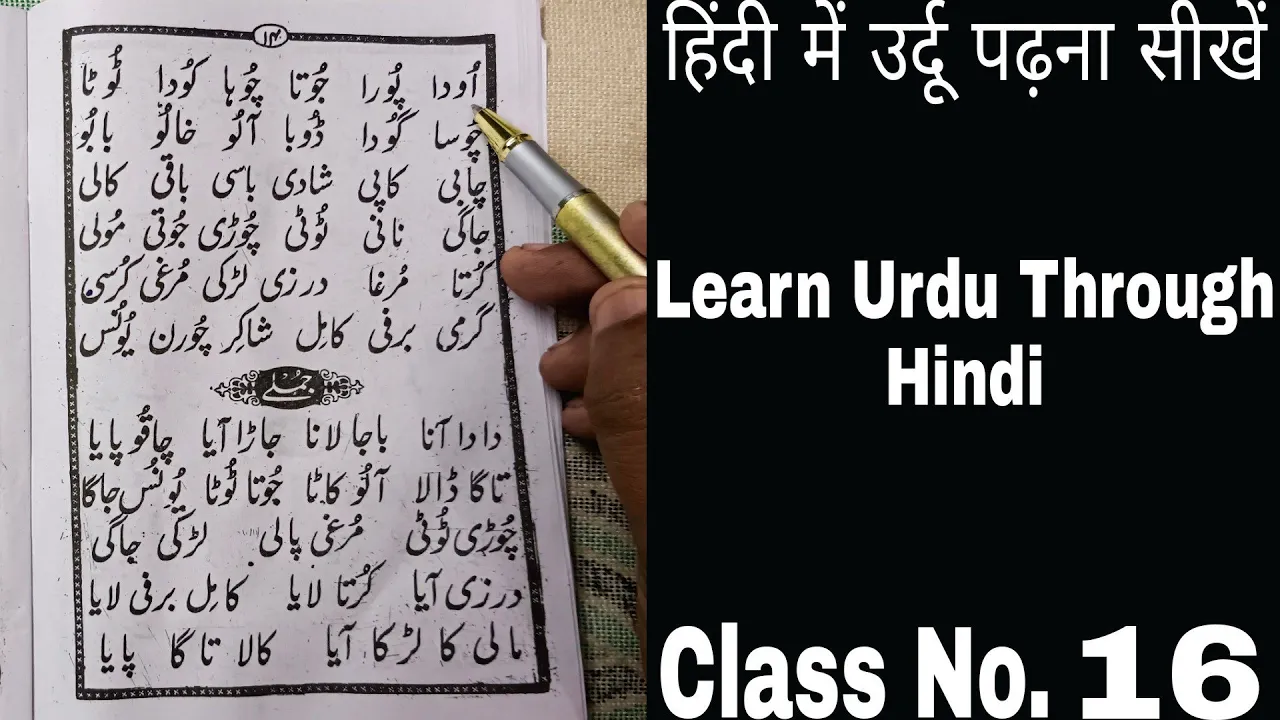 ۱۴
اُودا پُورا جُوتا چُوہا کُودا ٹُوٹا
چُوسا گُودا ڈُوبا آلُو خالُو بابُو
چابی کاپی شادی باسی باقی کالی
جاگی نانی ٹُوٹی چُوڑی جُوتی مُولی
کُرتا مُرغا درزی لڑکی مُرغی کُرسی
گرمی برفی کامِل شاکِر چُورن یُونُس
جُملے
دادا آنا باجا لانا جاڑا آیا چاقُو پایا
تاگا ڈالا آلُو کاٹا جُوتا ٹُوٹا یُونُس جاگا
چُوڑی ٹُوٹی مُرغی پالی لڑکی جاگی
درزی آیا کُرتا لایا کامِل برفی لایا
مالی کا لڑکا آیا کالا تاگا پایا
हिंदी में उर्दू पढ़ना सीखें
Learn Urdu Through
Hindi
Class No. 16